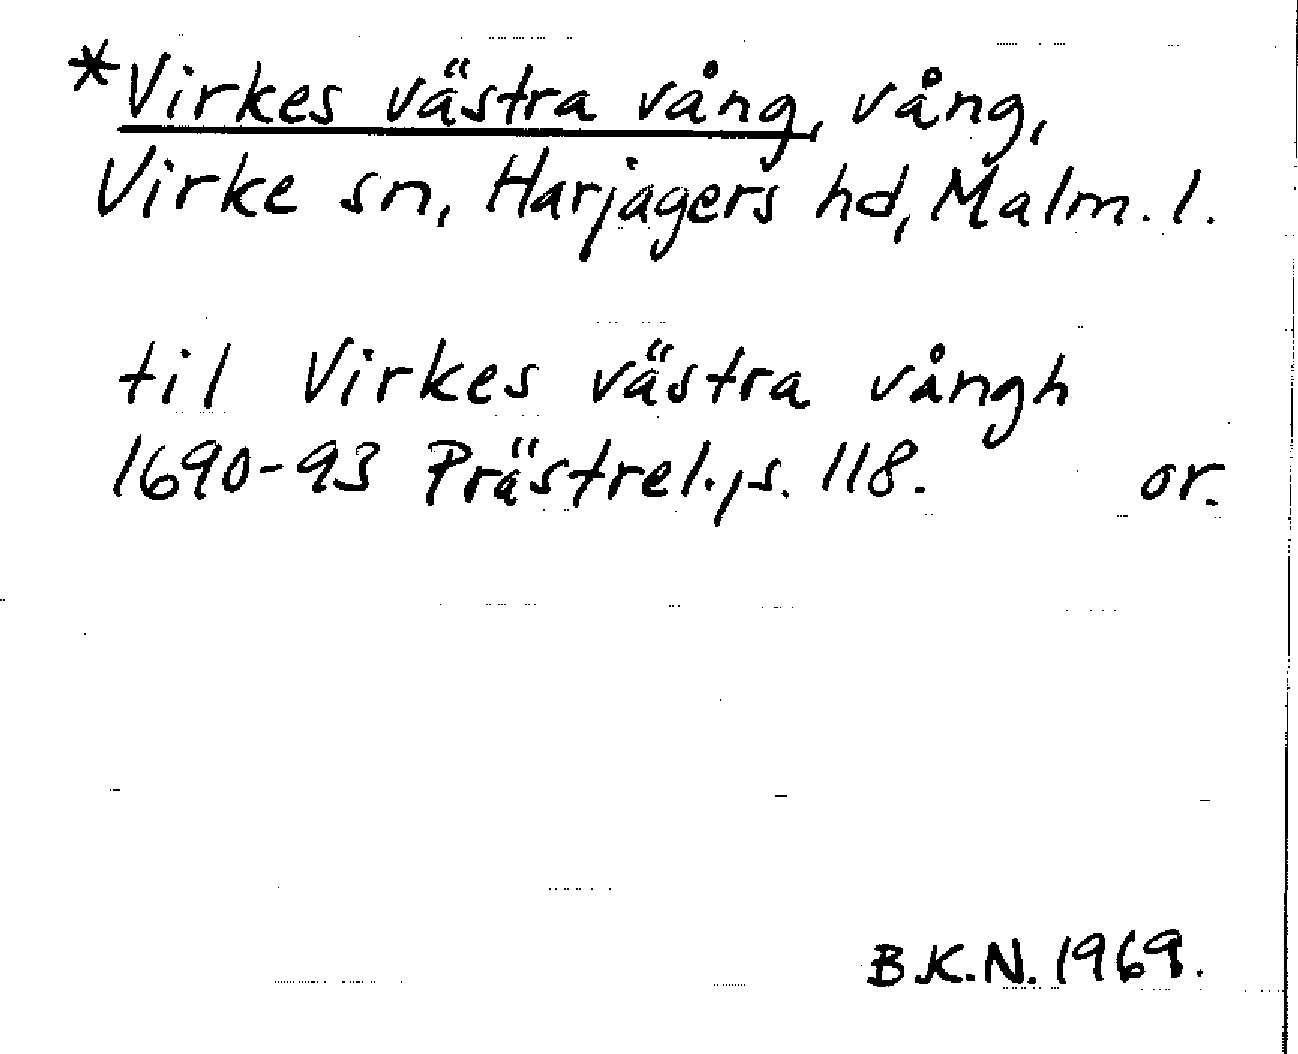 *Virkes västra vång, vång,
Virke sn, Harjagers hd, Malm. l.
til Virkes västra vångh
1690-93 Prästrel., s. 118. or.
B.K.N. 1969.